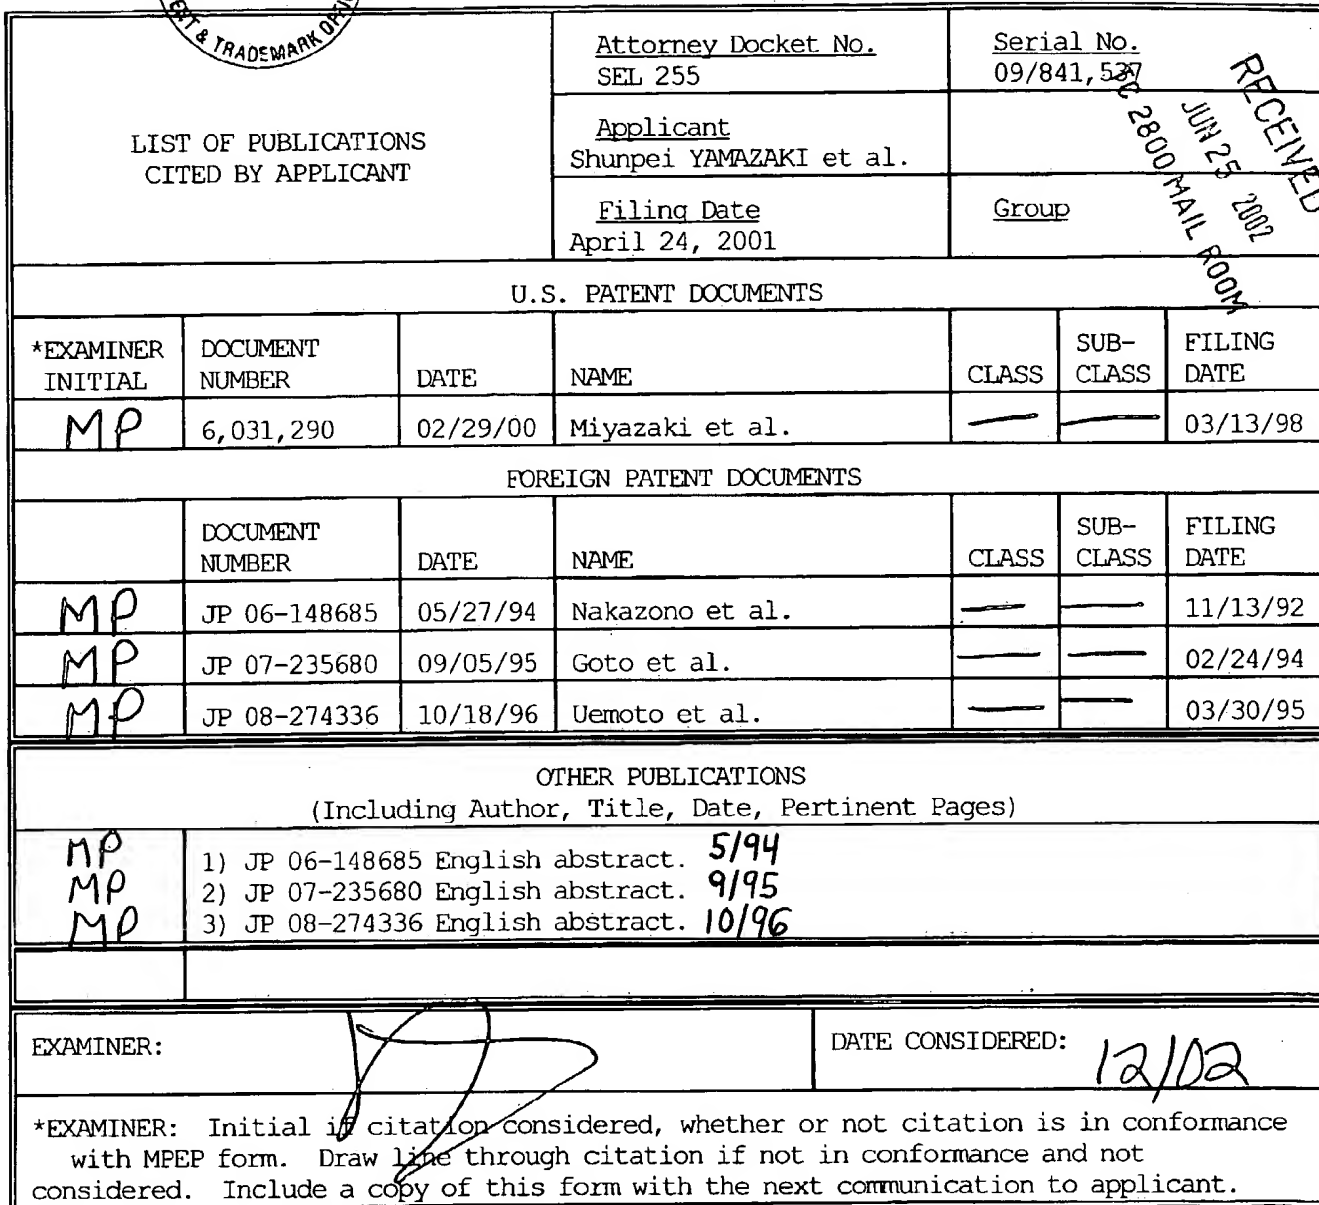 & TRADEMARK
Attorney Docket No.
SEL 255
Serial No.
09/841,537
RECEIVED
JUN 25 2002
2800 MAIL ROOM
LIST OF PUBLICATIONS
CITED BY APPLICANT
Applicant
Shunpei YAMAZAKI et al.
Filing Date
April 24, 2001
Group
U.S. PATENT DOCUMENTS
*EXAMINER INITIAL DOCUMENT NUMBER DATE NAME CLASS SUB-CLASS FILING DATE
MP 6,031,290 02/29/00 Miyazaki et al. — — 03/13/98
FOREIGN PATENT DOCUMENTS
DOCUMENT NUMBER DATE NAME CLASS SUB-CLASS FILING DATE
MP JP 06-148685 05/27/94 Nakazono et al. — — 11/13/92
MP JP 07-235680 09/05/95 Goto et al. — — 02/24/94
MP JP 08-274336 10/18/96 Uemoto et al. — — 03/30/95
OTHER PUBLICATIONS
(Including Author, Title, Date, Pertinent Pages)
MP 1) JP 06-148685 English abstract. 5/94
MP 2) JP 07-235680 English abstract. 9/95
MP 3) JP 08-274336 English abstract. 10/96
EXAMINER:
DATE CONSIDERED: 12/02
*EXAMINER: Initial if citation considered, whether or not citation is in conformance
with MPEP form. Draw line through citation if not in conformance and not
considered. Include a copy of this form with the next communication to applicant.